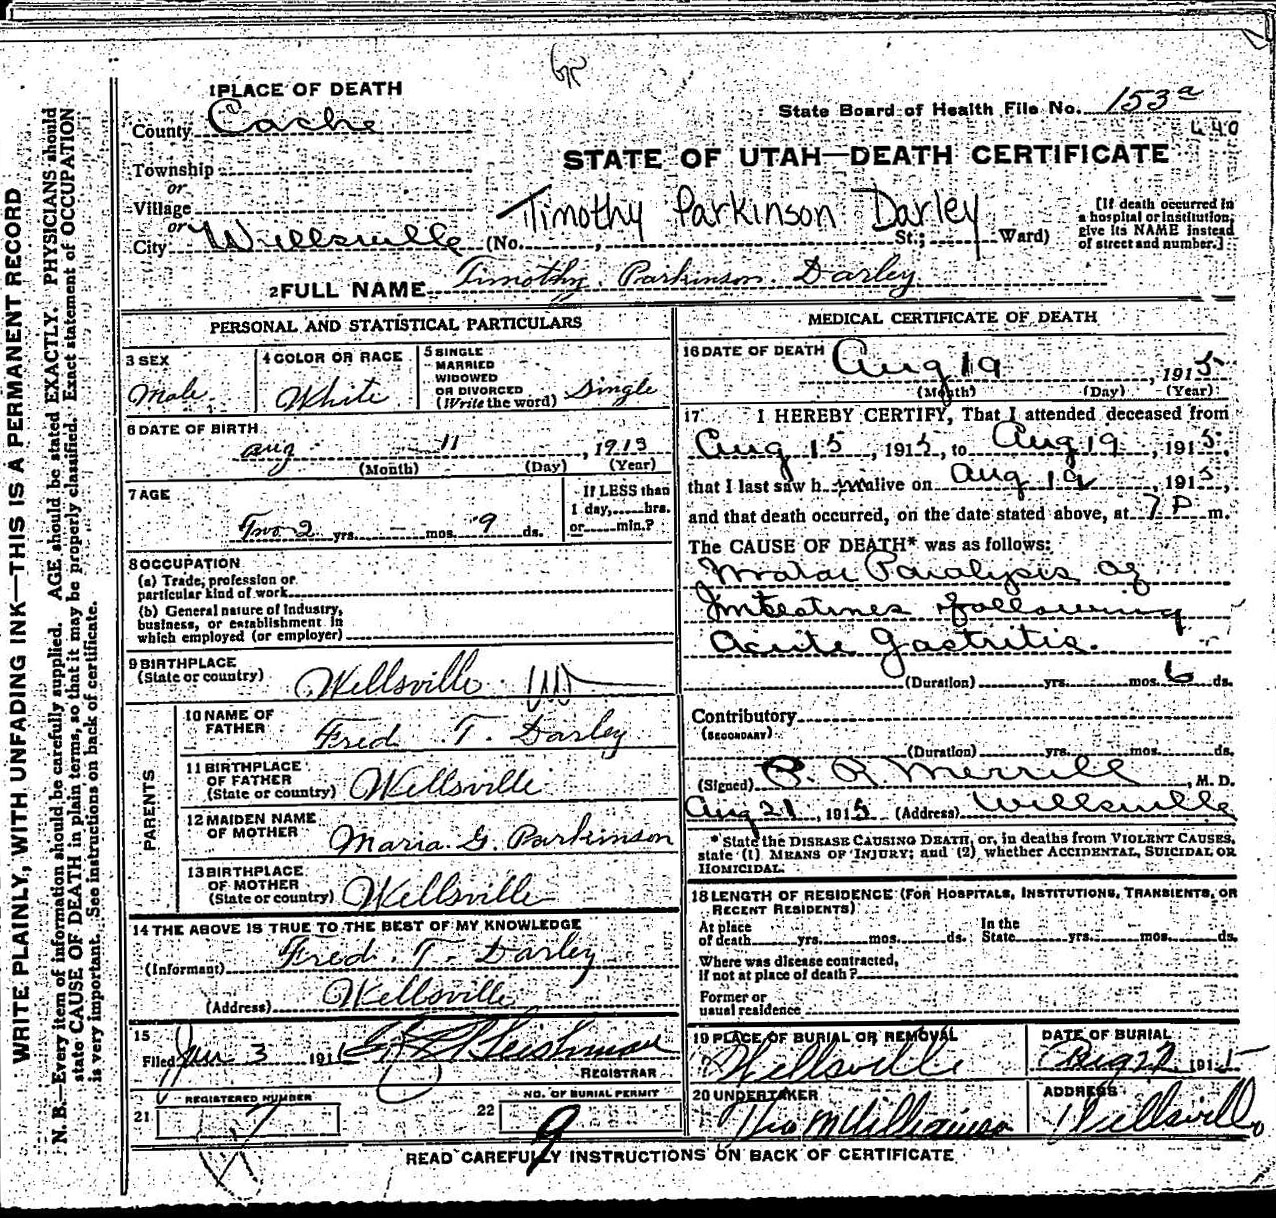 1 PLACE OF DEATH
County Cache
State Board of Health File No. 153a
440
Township
or
Village
or
City Wellsville
STATE OF UTAH—DEATH CERTIFICATE
Timothy Parkinson Darley
(No. , St.; Ward)
[If death occurred in
a hospital or institution,
give its NAME instead
of street and number.]
2 FULL NAME Timothy Parkinson Darley
PERSONAL AND STATISTICAL PARTICULARS
3 SEX
Male
4 COLOR OR RACE
White
5 SINGLE
MARRIED
WIDOWED
OR DIVORCED
(Write the word) Single
6 DATE OF BIRTH
Aug 11, 1913
(Month) (Day) (Year)
7 AGE
Two 2 yrs. — mos. 9 ds.
If LESS than
1 day, hrs.
or min.?
8 OCCUPATION
(a) Trade, profession or
particular kind of work
(b) General nature of Industry,
business, or establishment in
which employed (or employer)
9 BIRTHPLACE
(State or country) Wellsville Ut
PARENTS
10 NAME OF
FATHER Fred T. Darley
11 BIRTHPLACE
OF FATHER
(State or country) Wellsville
12 MAIDEN NAME
OF MOTHER Maria G. Parkinson
13 BIRTHPLACE
OF MOTHER
(State or country) Wellsville
14 THE ABOVE IS TRUE TO THE BEST OF MY KNOWLEDGE
(Informant) Fred. T. Darley
(Address) Wellsville
15
Filed 3 191 Leishman
REGISTRAR
REGISTERED NUMBER
21
NO. OF BURIAL PERMIT
22 9
MEDICAL CERTIFICATE OF DEATH
16 DATE OF DEATH Aug 19, 1915
(Month) (Day) (Year)
17 I HEREBY CERTIFY, That I attended deceased from
Aug 15, 1915, to Aug 19, 1915,
that I last saw him alive on Aug 19, 1915,
and that death occurred, on the date stated above, at 7 P m.
The CAUSE OF DEATH* was as follows:
Motor Paralysis of
Intestines following
Acute Gastritis.
(Duration) yrs. mos. 6 ds.
Contributory
(SECONDARY)
(Duration) yrs. mos. ds.
(Signed) P. R Merrill, M. D.
Aug 21, 1915 (Address) Wellsville
* State the DISEASE CAUSING DEATH, or, in deaths from VIOLENT CAUSES,
state (1) MEANS OF INJURY; and (2) whether ACCIDENTAL, SUICIDAL OR
HOMICIDAL.
18 LENGTH OF RESIDENCE (FOR HOSPITALS, INSTITUTIONS, TRANSIENTS, OR
RECENT RESIDENTS)
At place
of death yrs. mos. ds.
In the
State yrs. mos. ds.
Where was disease contracted,
if not at place of death?
Former or
usual residence
19 PLACE OF BURIAL OR REMOVAL
Wellsville
DATE OF BURIAL
Aug 22, 1915
20 UNDERTAKER
ADDRESS
Wellsville
READ CAREFULLY INSTRUCTIONS ON BACK OF CERTIFICATE
WRITE PLAINLY, WITH UNFADING INK—THIS IS A PERMANENT RECORD
N. B.—Every item of information should be carefully supplied. AGE should be stated EXACTLY. PHYSICIANS should
state CAUSE OF DEATH in plain terms, so that it may be properly classified. Exact statement of OCCUPATION
is very important. See instructions on back of certificate.